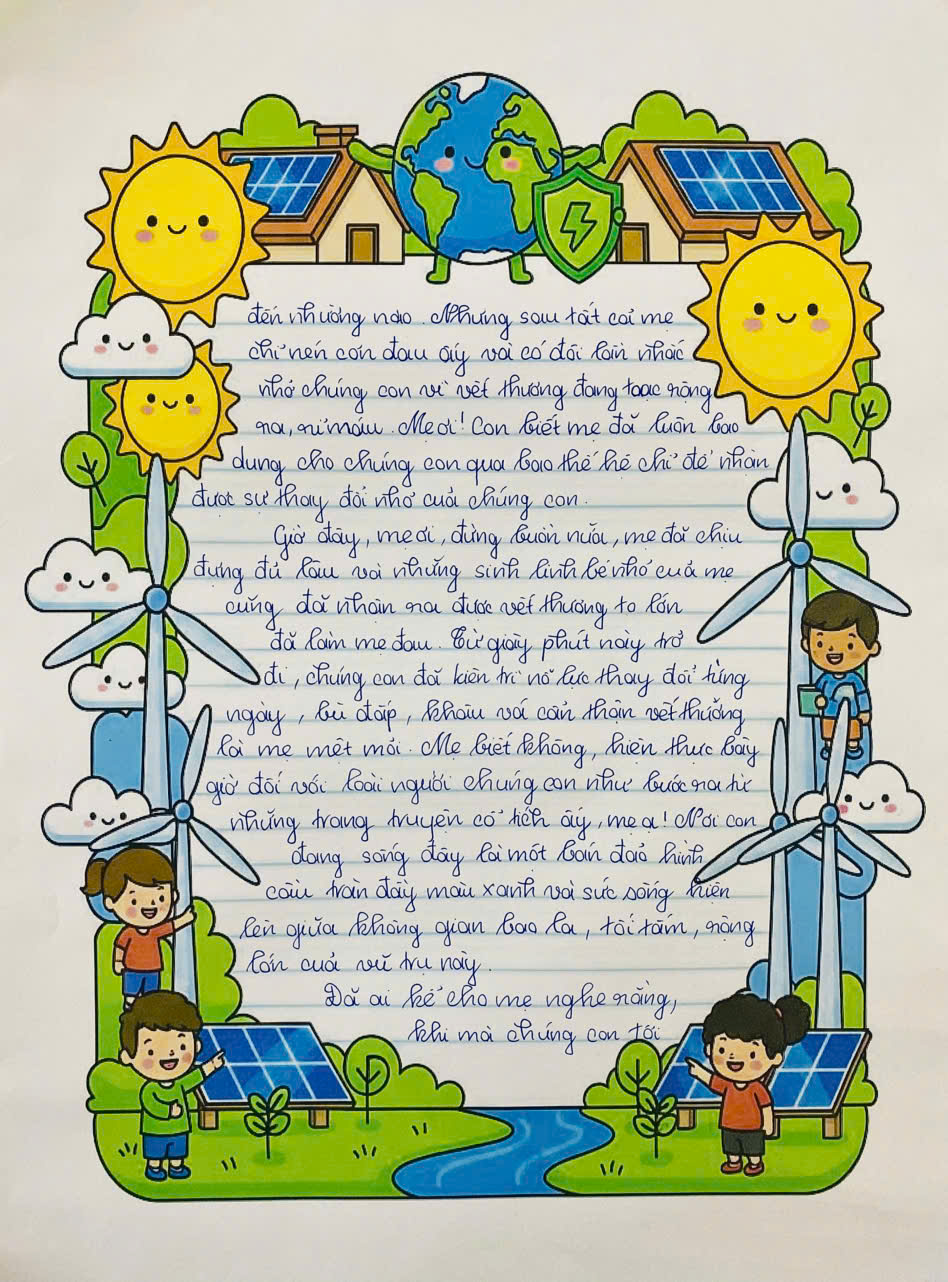 đến nhường nào. Nhưng sau tất cả mẹ
chỉ nén cơn đau ấy và có đôi lần nhắc
nhở chúng con vì vết thương đang toạc rộng
ra, rỉ máu. Mẹ ơi! Con biết mẹ đã luôn bao
dung cho chúng con qua bao thế hệ chỉ để nhận
được sự thay đổi nhỏ của chúng con.
Giờ đây, mẹ ơi, đừng buồn nữa, mẹ đã chịu
đựng đủ lâu và những sinh linh bé nhỏ của mẹ
cũng đã nhận ra được vết thương to lớn
đã làm mẹ đau. Từ giây phút này trở
đi, chúng con đã kiên trì nỗ lực thay đổi từng
ngày, bù đắp, khâu vá cẩn thận vết thưởng
là mẹ mệt mỏi. Mẹ biết không, hiện thực bây
giờ đối với loài người chúng con như bước ra từ
những trang truyện cổ tích ấy, mẹ ạ! Nơi con
đang sống đây là một bán đảo hình
cầu tràn đầy màu xanh và sức sống hiện
lên giữa không gian bao la, tối tăm, rộng
lớn của vũ trụ này.
Đã ai kể cho mẹ nghe rằng,
khi mà chúng con tới